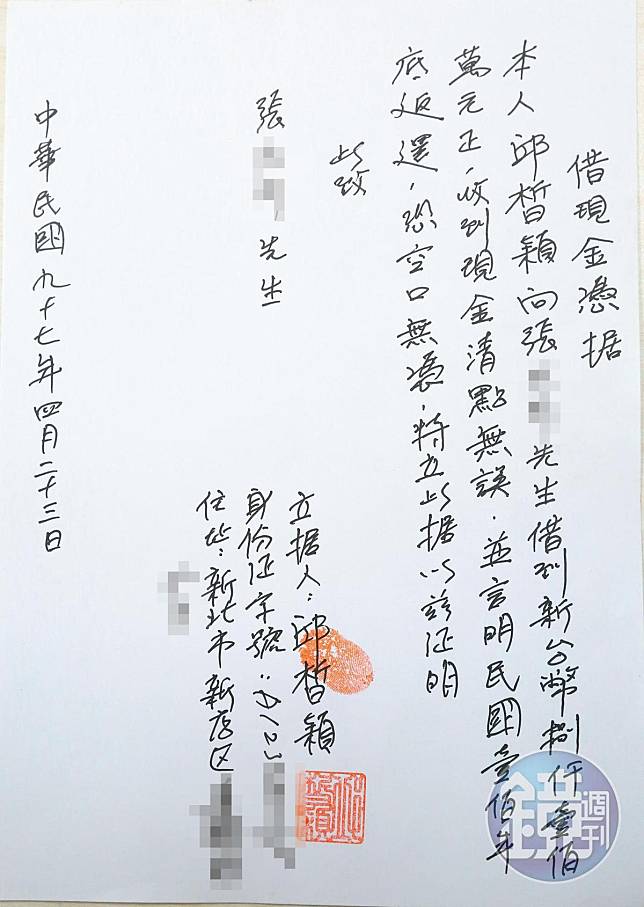 借現金憑据
本人邱晳穎向張 先生借到新台幣捌仟壹佰
萬元正,收到現金清點無誤.並言明民國壹佰年
底返還,恐空口無憑,特立此据以茲证明
此致
張 先生
立据人:邱晳穎
身份证字號:A122
住址:新北市新店区
中華民國九十七年四月二十三日
鏡週刊